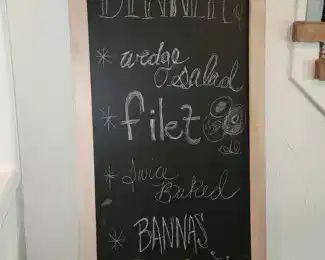 DINNER
* wedge
salad
* filet
* Twice
BAKED
* BANNAS